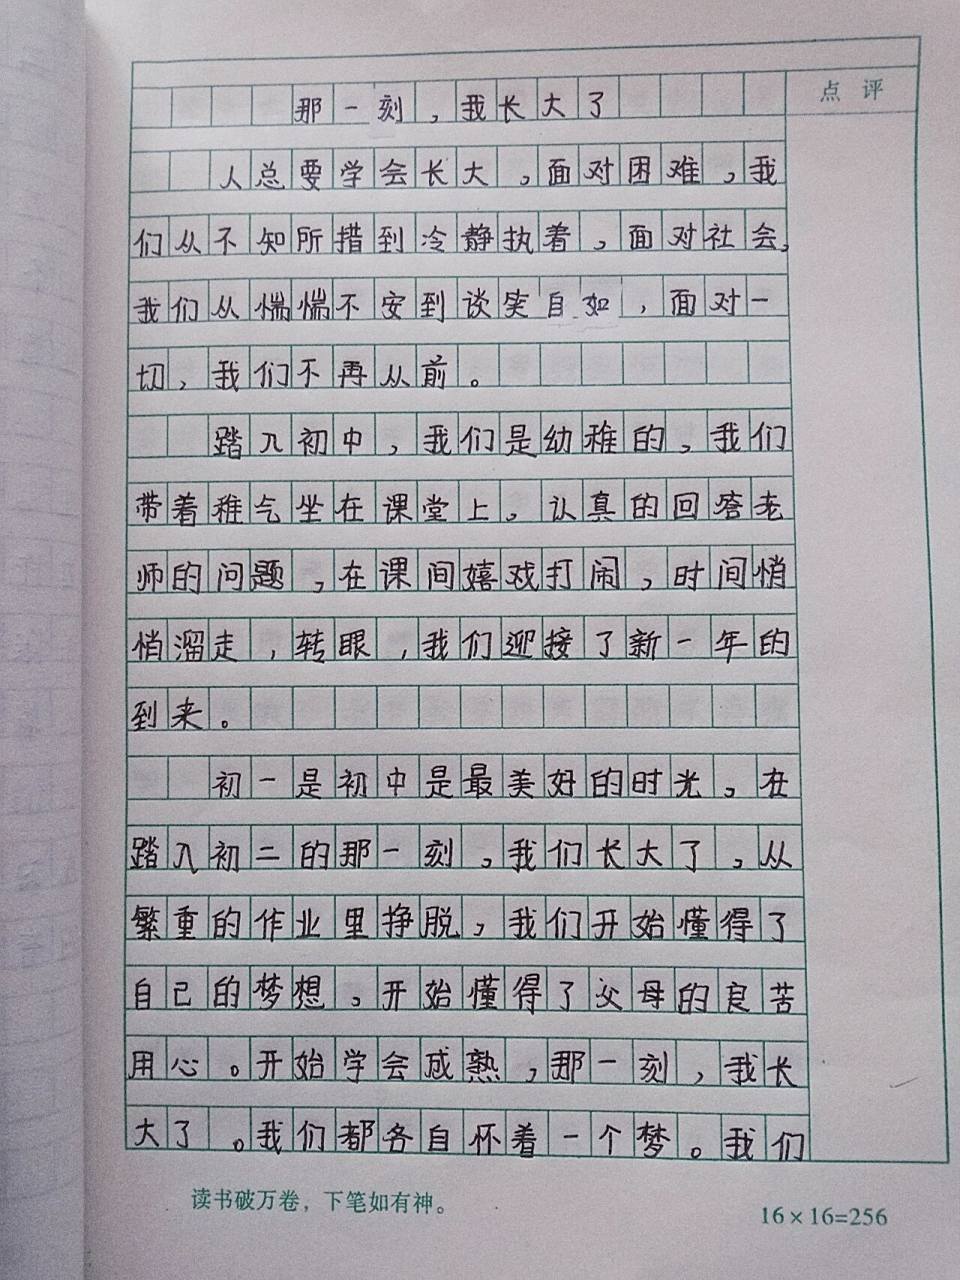 点 评
那一刻，我长大了
人总要学会长大，面对困难，我
们从不知所措到冷静执着，面对社会，
我们从惴惴不安到谈笑自如，面对一
切，我们不再从前。
踏入初中，我们是幼稚的，我们
带着稚气坐在课堂上，认真的回答老
师的问题，在课间嬉戏打闹，时间悄
悄溜走，转眼，我们迎接了新一年的
到来。
初一是初中是最美好的时光，在
踏入初二的那一刻，我们长大了，从
繁重的作业里挣脱，我们开始懂得了
自己的梦想，开始懂得了父母的良苦
用心。开始学会成熟，那一刻，我长
大了。我们都各自怀着一个梦。我们
读书破万卷，下笔如有神。
16×16=256